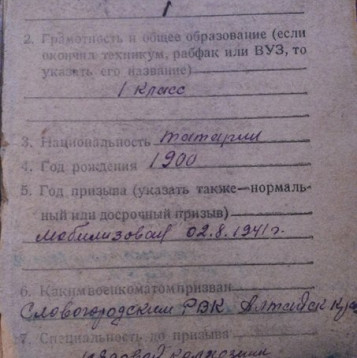 1
2. Грамотность и общее образование (если
окончил техникум, рабфак или ВУЗ, то
указать его название)
1 класс
3. Национальность татарин
4. Год рождения 1900
5. Год призыва (указать также—нормаль-
ный или досрочный призыв)
мобилизован 02.8.1941г.
6. Каким военкоматом призван
Славгородским РВК Алтайск
7. Специальность до призыва